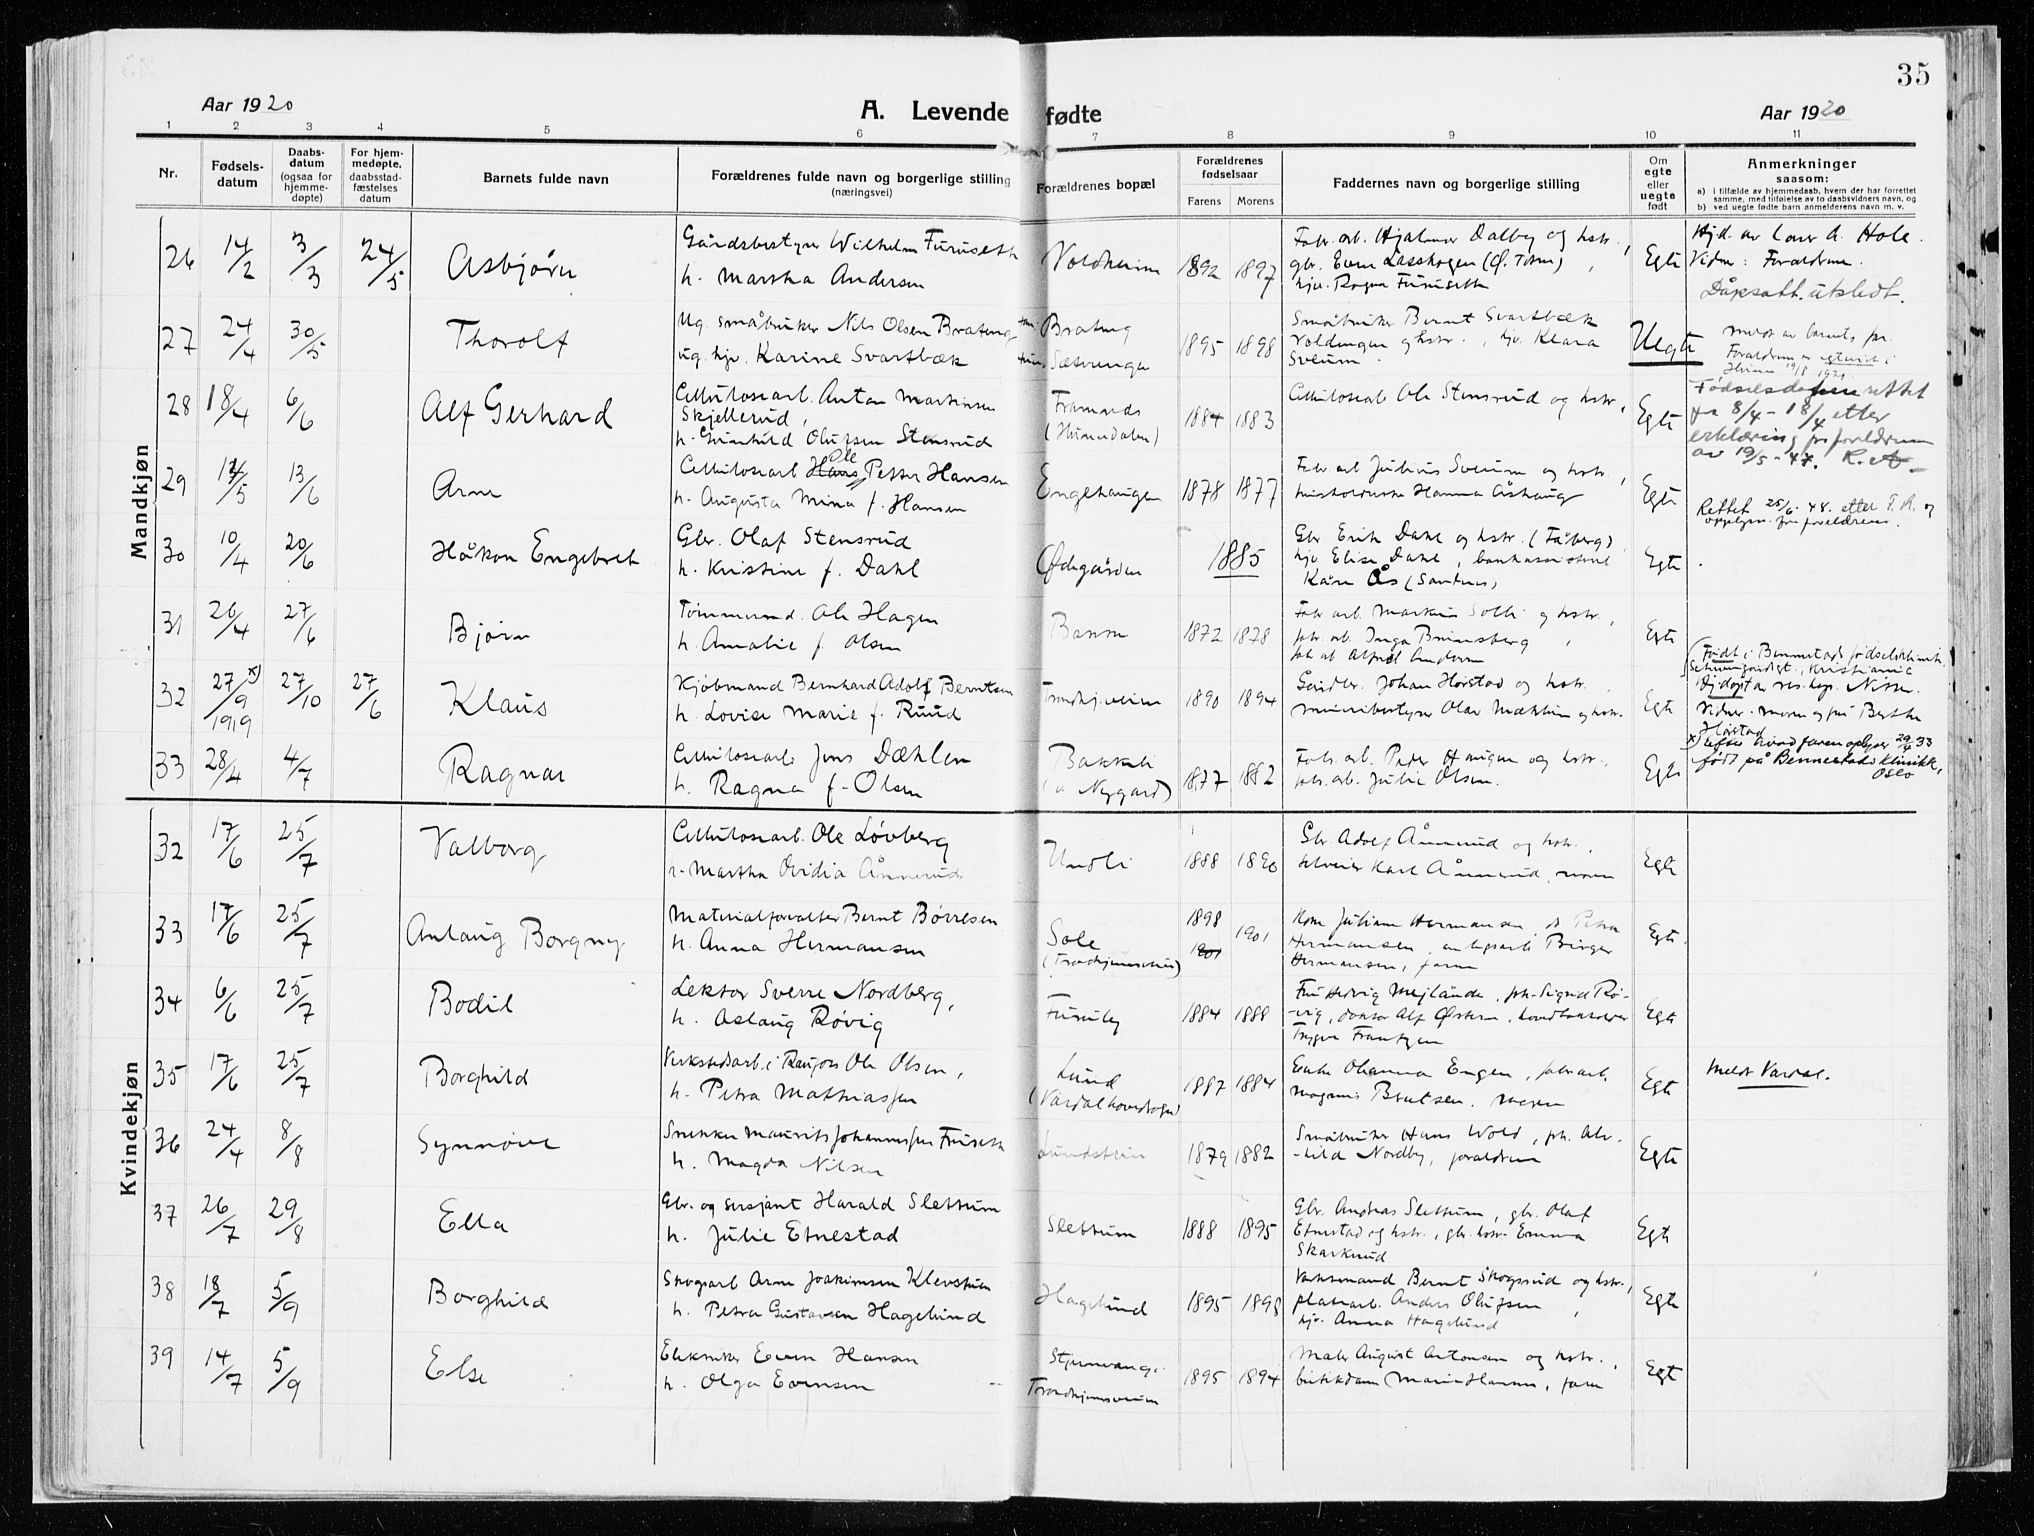 35
Aar 1920
A. Levende fødte
Aar 1920
1 2 3 4 5 6 7 8 9 10 11
Nr.
Fødsels-
datum
Daabs-
datum
(ogsaa for
hjemme-
døpte)
For hjem-
medøpte,
daabsstad-
fæstelses
datum
Barnets fulde navn
Forældrenes fulde navn og borgerlige stilling
(næringsvei)
Forældrenes bopæl
Forældrenes
fødselsaar
Farens Morens
Faddernes navn og borgerlige stilling
Om
egte
eller
uegte
født
Anmerkninger
saasom:
a) i tilfælde av hjemmedaab, hvem der har forrettet
samme, med tilføielse av to daabsvidners navn, og
b) ved uegte fødte barn anmelderens navn m. v.
Mandkjøn
26 14/2 3/3 24/5 Asbjørn
Gårdsbestyrer Wilhelm Furuseth
h. Martha Andersen
Voldheim 1892 1897
Fabr. arb. Hjalmar Dalby og hstr.,
gbr. Even Lasskogen (Ø. Toten),
hjv. Ragna Furuseth
Egte
Hjd. av lærer A. Hole.
Vidner: Forældrene.
Dåpsatt. utstedt.
27 24/4 30/5 Thorolf
Ug. småbruker Nils Olsen Brateng
ug. hjv. Karine Svartbæk
Brateng
Sætrenga
1895 1898
Småbruker Bernt Svartbæk
Voldengen og hstr., hjv. Klara
Sveum.
Uegte
Meldt av barnets far.
Forældrene egteviet i
19/8 1920
28 18/4 6/6 Alf Gerhard
Celluloseab. Anton Martinsen
Skjellerud,
h. Olufsen Stensrud
(Hunndalen)
1884 1883
Celluloseab. Ole Stensrud og hstr.,
Egte
Fødselsdatoen rettet
fra 8/4 - 18/4 etter
erklæring fra foreldrene
av 19/5-47.
29 14/5 13/6 Arne
Celluloseab. Hans Ole Petter Hansen
h. Augusta Mina f. Hansen
Engehaugen 1878 1877
Fabr. arb. Julius Sveum og hstr.,
Hanna Åshaug
Egte
Rettet 25/6-48. etter F. R. og
opplysn. fra foreldrene.
30 10/4 20/6 Håkon Engebret
Gbr. Olaf Stensrud
h. Kristine f. Dahl
Ødegården 1885
Gbr Erik Dahl og hstr. (Fåberg),
hjv. Elise Dahl, bankassistent
Kåre Ås (Sandnes)
Egte
31 26/4 27/6 Bjørn
Tømmermd. Ole Hagen
h. Amalie f. Olsen
1872 1878
Fabr. arb. Markus Solli og hstr.,
fabr. arb. Inga Brinsberg,
fab. ab. Alfred Andersen
Egte
32 27/9 x) 1919 27/10 27/6 Klaus
Kjøbmand Bernhard Adolf Berntsen
h. Lovise Marie f. Ruud
Trondhjemsveien 1890 1894
Gårdbr. Johan Horstad og hstr.,
meieribestyrer Olav Mæhlum og hstr.
Egte
Født i Bennestads fødselsklinik,
Schweigaardsgt., Kristiania
Hjdøpt av res. kap. Nissen.
Vidner: moren og frk. Berthe
Horstad
x) efter hvad faren oplyser 29/4 33
født på Bennestads klinikk,
Oslo
33 28/4 4/7 Ragnar
Celluloseab. Jens Dæhlen
h. Ragna f. Olsen
Bakkeli
(u. Nygard)
1877 1882
Fabr. arb. Peder Haugen og hstr.,
fabr. arb. Julie Olsen.
Egte
Kvindekjøn
32 17/6 25/7 Valborg
Celluloseab. Ole Løvberg
h. Martha Ovidia Ånnerud
Undli 1888 1890
Gbr. Adolf Ånnerud og hstr.,
Karl Ånnerud, moren
Egte
33 17/6 25/7 Aslaug Borgny
Materialforvalter Bernt Børresen
h. Anna Hermansen
Sole
(Trondhjemsveien)
1898 1901 1901
Kone Juliane Hermansen, do Petra
Hermansen, anlegsarb. Birger
Hermansen, faren
Egte
34 6/6 25/7 Bodil
Lektor Sverre Nordberg,
h. Aslaug Røvig
Furuly 1884 1888
Fru Hedvig Mejlænde, frk. Sigrid Rø-
-vig, doktor Alf Østern, hovedbokholder
Trygve Frantzen
Egte
35 17/6 25/7 Borghild
Verkstedsarb. i Raufoss Ole Olsen,
h. Petra Mathiassen
Lund
(Vardal hovedsogn)
1887 1884
Enke Oleanna Engen, fabr. arb.
Magnus Berntsen, moren
Egte
Meldt Vardal.
36 24/4 8/8 Synnøve
Snekker Maurits Johannessen Furuseth
h. Magda Nilsen
Lundstein 1879 1882
Småbruker Hans Wold, frk. Alv-
-hild Nordby, forældrene
Egte
37 26/7 29/8 Ella
Gbr. og sersjant Harald Slettum
h. Julie Etnestad
Slettum 1888 1895
Gbr. Andreas Slettum, gbr. Olaf
Etnestad og hstr., gbr. hstr. Emma
Skarkerud
Egte
38 18/7 5/9 Borghild
Skogsarb Arne Joakimsen Klevstuen
h. Petra Gustavsen Hagelund
Hagelund 1895 1898
Verksmand Bernt Skogsrud og hstr.,
platearb. Anders Olufsen,
hjv. Anna Hagelund
Egte
39 14/7 5/9 Else
Elektriker Even Hansen
h. Olga Evensen
Stjernvang,
Trondhjemsveien
1895 1894
Maler August Antonsen og hstr.,
butikdame Marie Hansen, faren
Egt